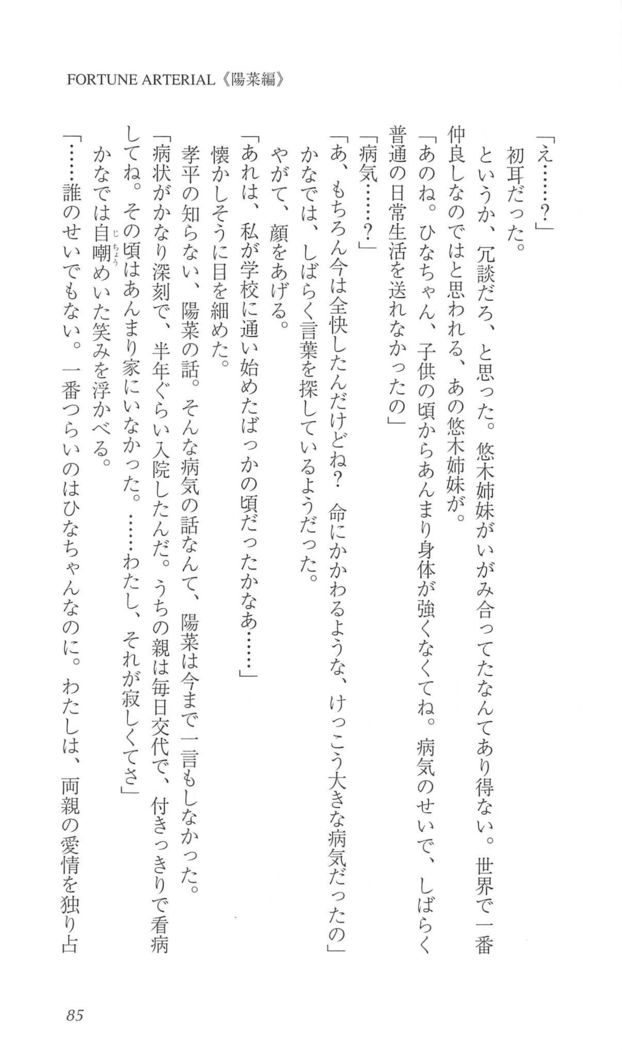 FORTUNE ARTERIAL《陽菜編》
「え……？」
初耳だった。
というか、冗談だろ、と思った。悠木姉妹がいがみ合ってたなんてあり得ない。世界で一番
仲良しなのではと思われる、あの悠木姉妹が。
「あのね。ひなちゃん、子供の頃からあんまり身体が強くなくてね。病気のせいで、しばらく
普通の日常生活を送れなかったの」
「病気……？」
「あ、もちろん今は全快したんだけどね？　命にかかわるような、けっこう大きな病気だったの」
かなでは、しばらく言葉を探しているようだった。
やがて、顔をあげる。
「あれは、私が学校に通い始めたばっかの頃だったかなあ……」
懐かしそうに目を細めた。
孝平の知らない、陽菜の話。そんな病気の話なんて、陽菜は今まで一言もしなかった。
「病状がかなり深刻で、半年ぐらい入院したんだ。うちの親は毎日交代で、付きっきりで看病
してね。その頃はあんまり家にいなかった。……わたし、それが寂しくてさ」
かなでは自嘲めいた笑みを浮かべる。
じちょう
「……誰のせいでもない。一番つらいのはひなちゃんなのに。わたしは、両親の愛情を独り占
85